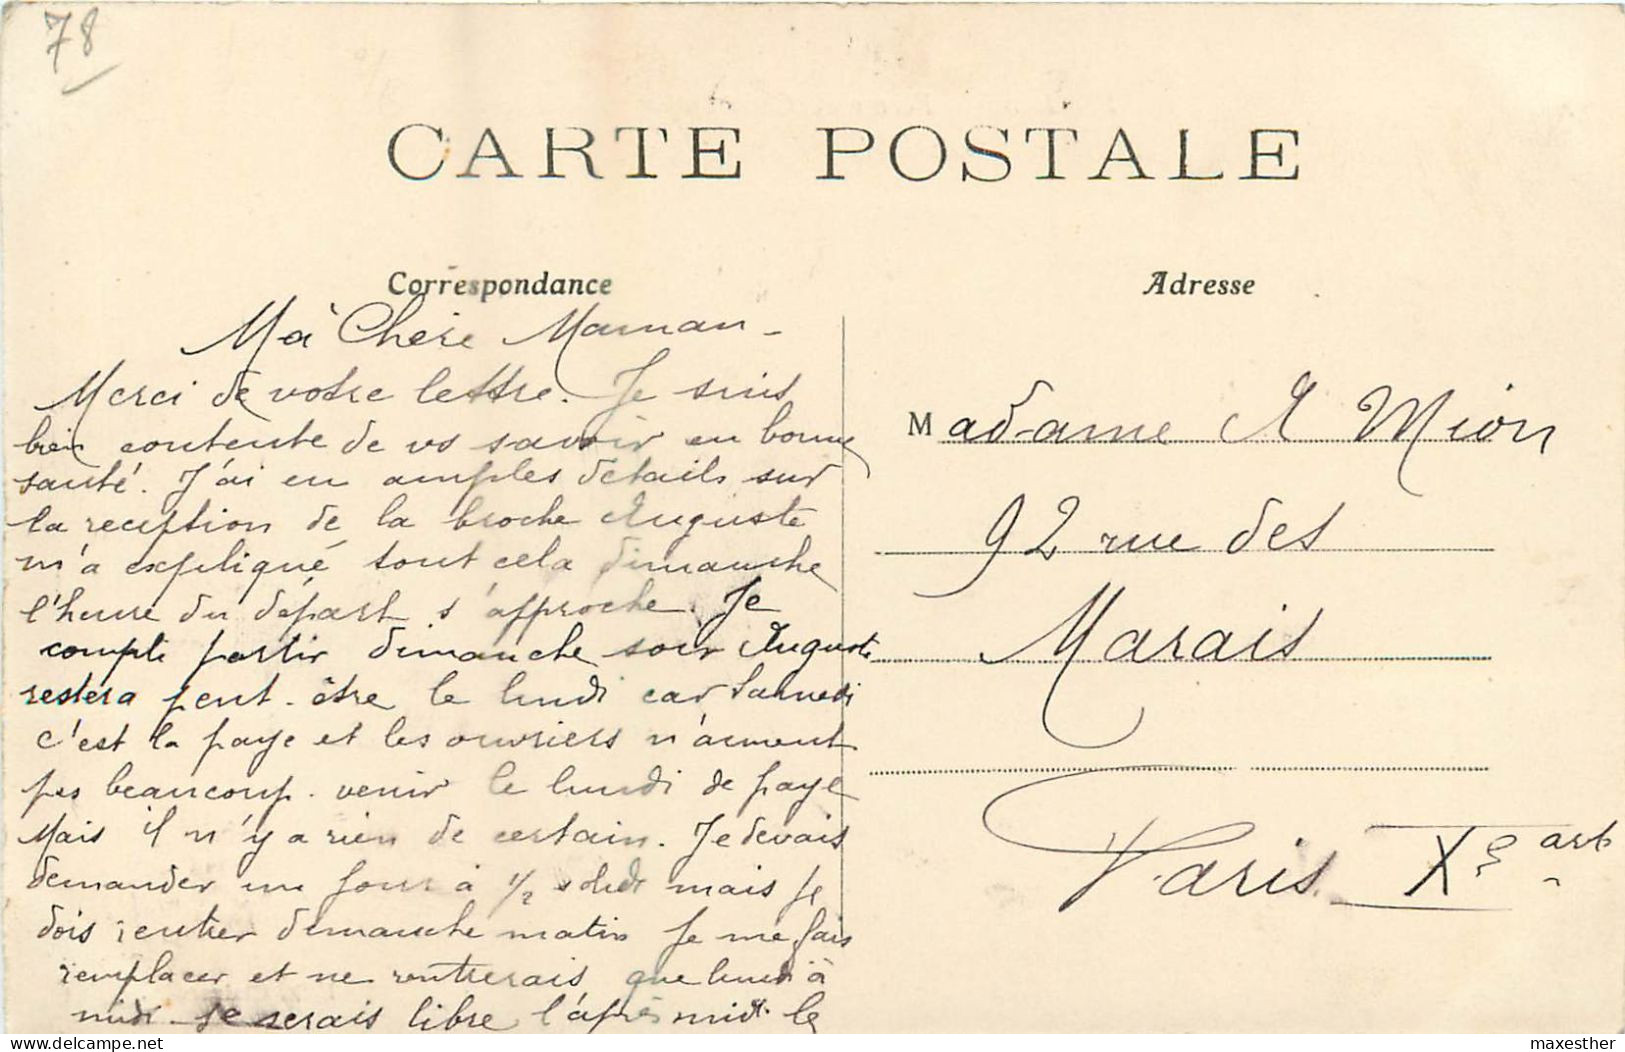 78
CARTE POSTALE
Correspondance
Adresse
Ma Chère Maman -
Merci de votre lettre. Je suis
bien contente de vs savoir en bonne
santé. J'ai eu amples détails sur
la reception de la broche Auguste
m'a expliqué tout cela dimanche
l'heure du départ s'approche. Je
compte partir dimanche soir Auguste
restera peut-être le lundi car Samedi
c'est la paye et les ouvriers n'aiment
pas beaucoup venir le lundi de paye
Mais il n'y a rien de certain. Je devais
demander un jour à 1/2 solde mais je
dois rentrer demanche matin Je me fais
remplacer et ne rentrerais que lundi à
midi Je serais libre l'après midi le
Madame A Mion
92 rue des
Marais
Paris Xe art
delcampe.net
maxesther